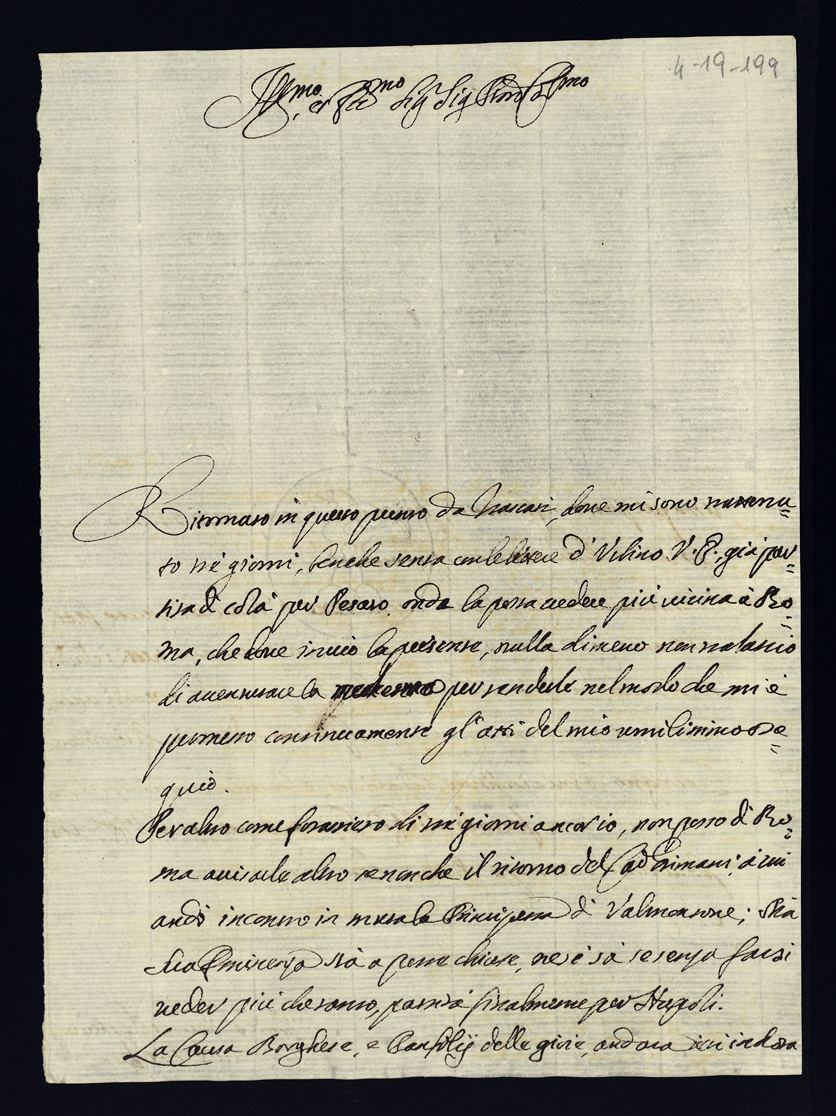 4-19-199
Ill.mo et Ecc.mo Sig.r Sig. Pron Col.mo
Ritornato in questo punto da Frascati, dove mi sono trattenu=
to tre giorni, benche senza di V.E., già par=
tita di colà per Pesaro, onde la possa vedere più vicina à Ro=
ma, che dove invio la presente, nulla dimeno non tralascio
di avventurare la medesma per renderle nel modo che mi è
permesso continuamente gl'atti del mio umilissimo osse=
quio.
Per altro come forastiero di tre giorni ancor io, non posso di Ro=
ma avisarle altro se non che il ritorno del Card Grimani, à cui
andò incontro in la Principessa di Valmontone; Mà
Sua Eminenza stà a porte chiuse, ne si sà se senza farsi
veder più che tanto, passerà finalmente per Napoli.
La Causa Borghese, e Panfilij delle gioie, andata ieri in